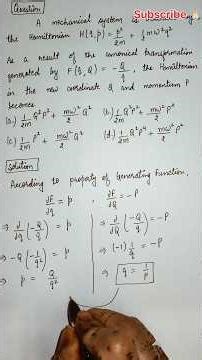 Question
Subscribe
A mechanical system
the Hamiltonian H(q,p) = p²/2m + ½ mω²q²
As a result of the canonical transformation
generated by F(q,Q) = -Q/q, the Hamiltonian
in the new coordinate Q and momentum P
becomes
(a.) 1/2m Q²P² + mω²/2 Q²
(b.) 1/2m Q²P² + mω²/2 P²
(c.) 1/2m P² + mω²/2 Q²
(d.) 1/2m Q²P⁴ + mω²/2 P⁻²
Solution
According to property of Generating Function,
∂F/∂q = p, ∂F/∂Q = -P
⇒ ∂/∂q (-Q/q) = p ⇒ ∂/∂Q (-Q/q) = -P
⇒ -Q(-1/q²) = p ⇒ (-1) 1/q = -P
⇒ p = Q/q² ⇒ q = 1/P